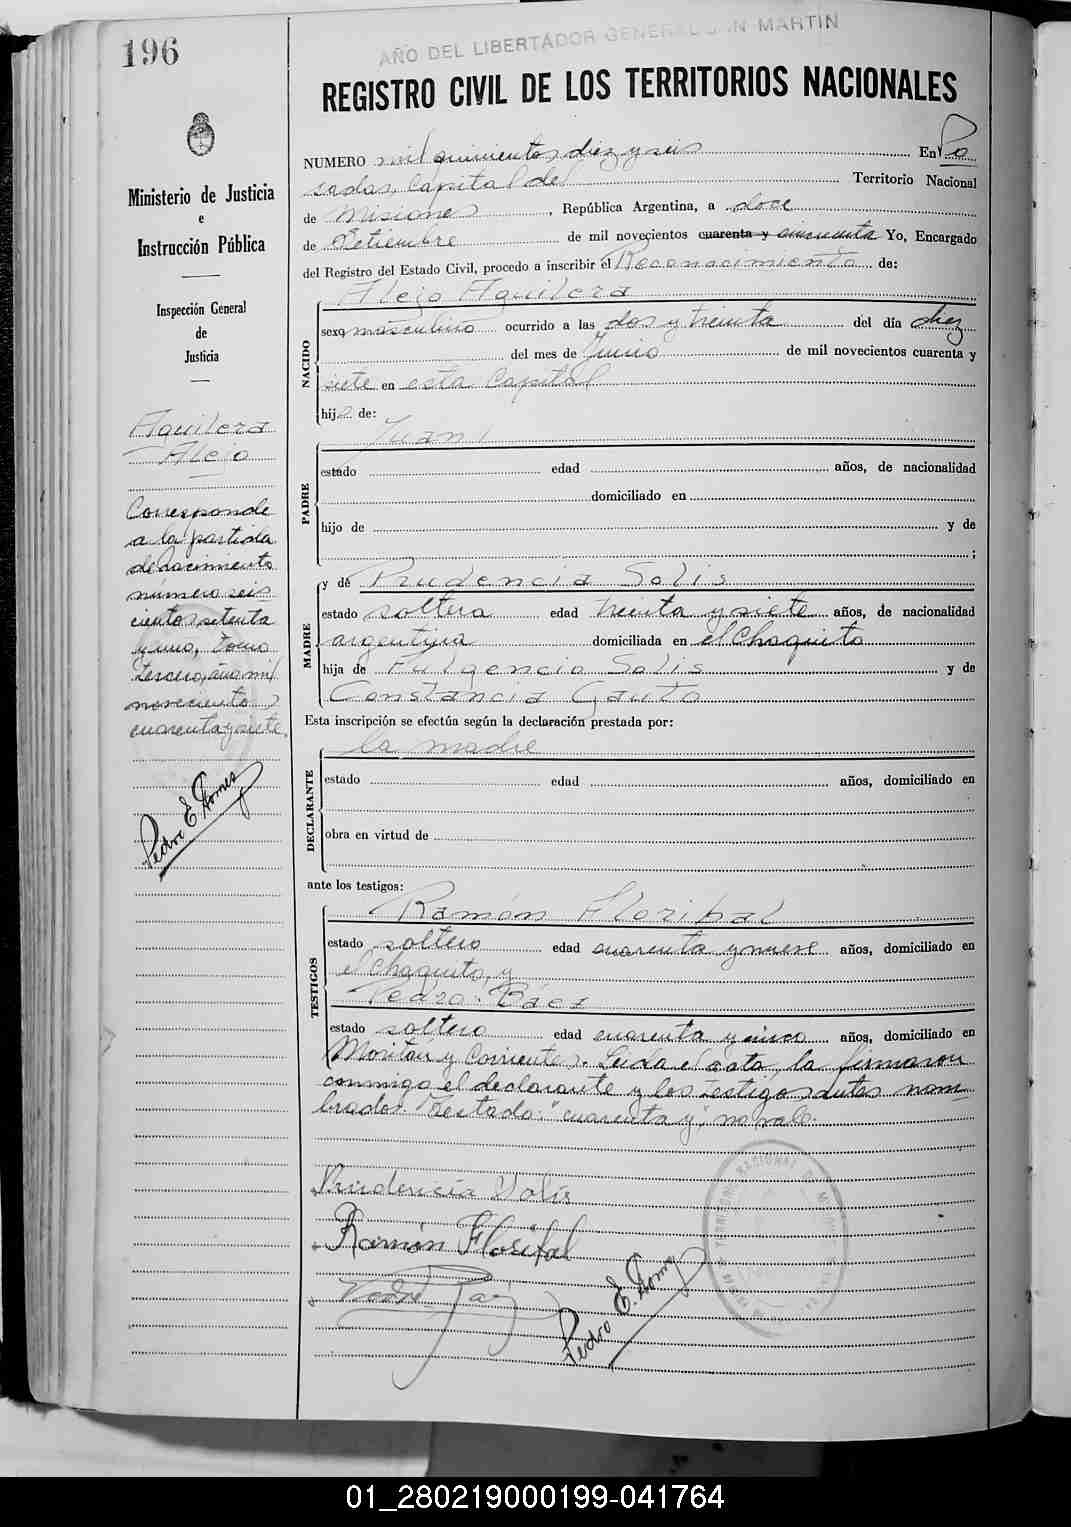 196
AÑO DEL LIBERTADOR GENERAL SAN MARTIN
REGISTRO CIVIL DE LOS TERRITORIOS NACIONALES
Ministerio de Justicia
e
Instrucción Pública
Inspección General
de
Justicia
Aguilera
Alejo
Corresponde
a la partida
de nacimiento
número seis
cientos setenta
y uno, tomo
tercero, año mil
novecientos
cuarenta y siete.
Pedro E. Gomez
NUMERO mil quinientos diez y seis En Po
sadas, Capital del Territorio Nacional
de Misiones, República Argentina, a doce
de Setiembre de mil novecientos cuarenta y cincuenta Yo, Encargado
del Registro del Estado Civil, procedo a inscribir el Reconocimiento de:
Alejo Aguilera
NACIDO
sexo masculino ocurrido a las dos y treinta del día diez
del mes de Junio de mil novecientos cuarenta y
siete en esta Capital
hijo de:
Juan
PADRE
estado edad años, de nacionalidad
domiciliado en
hijo de y de
;
MADRE
y de Prudencia Solis
estado soltera edad treinta y siete años, de nacionalidad
argentina domiciliada en el Chaquito
hija de Fulgencio Solis y de
Constancia Gauto
Esta inscripción se efectúa según la declaración prestada por:
la madre
DECLARANTE
estado edad años, domiciliado en
obra en virtud de
ante los testigos:
TESTIGOS
Ramón Floribal
estado soltero edad cuarenta y nueve años, domiciliado en
el Chaquito, y
Pedro Báez
estado soltero edad cuarenta y cinco años, domiciliado en
Moritán y Corrientes. Leida el acta, la firmaron
conmigo el declarante y los testigos antes nom-
brados. Testado: "cuarenta y", no vale.
Prudencia Solis
Ramón Floribal
Pedro E. Gomez
01_280219000199-041764